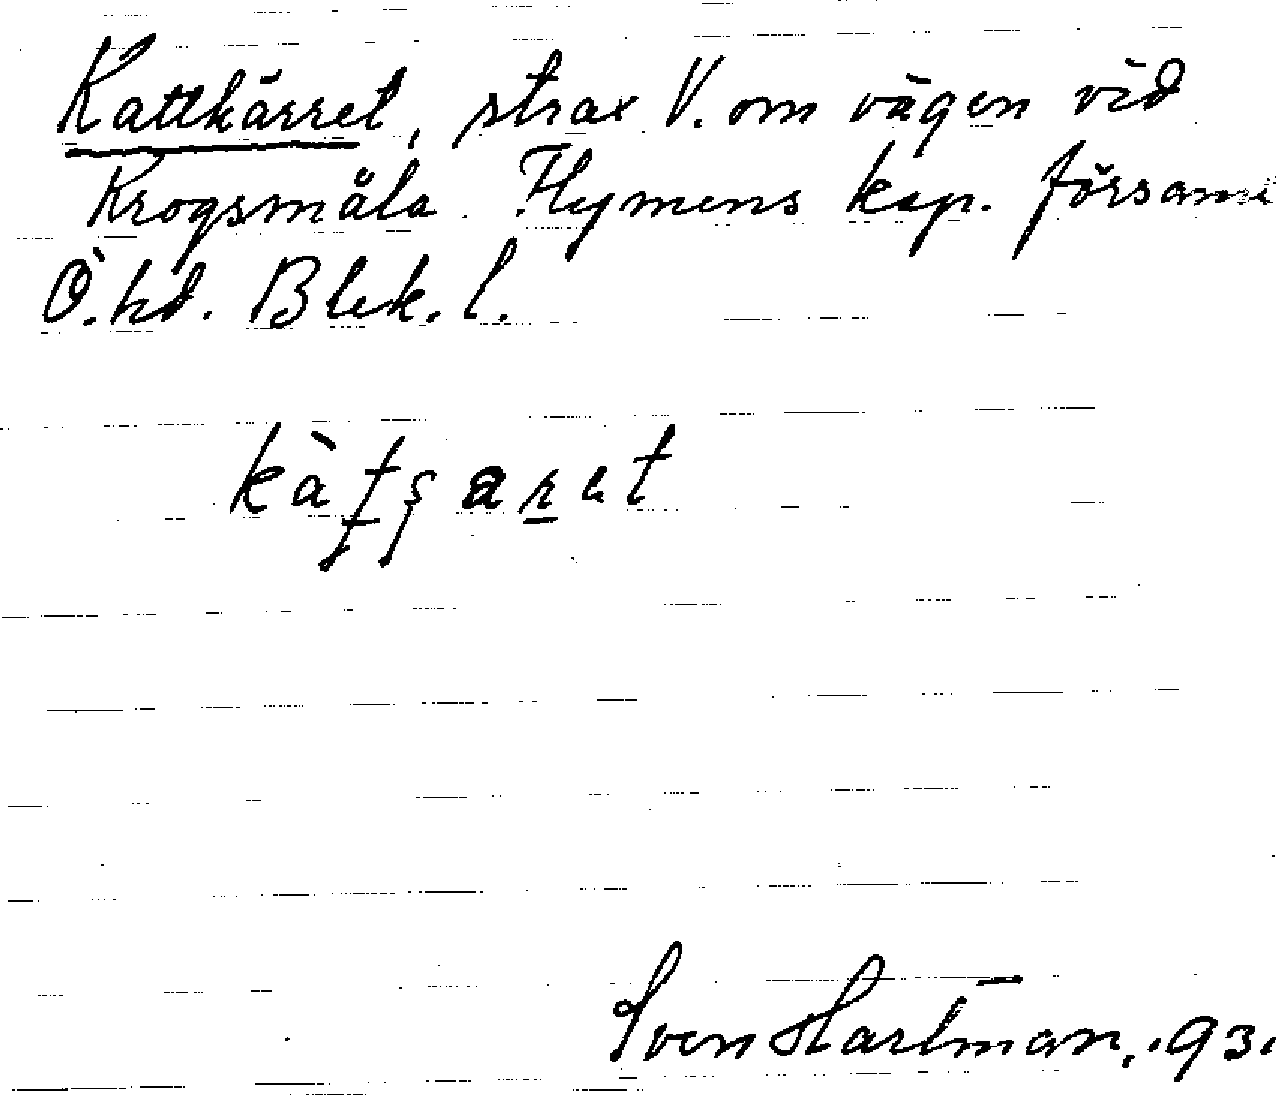 Kattkärret, strax V. om vägen vid
Krogsmåla. Flymens kap. församl
Ö. hd. Blek. l.
Sven Hartman, 1931